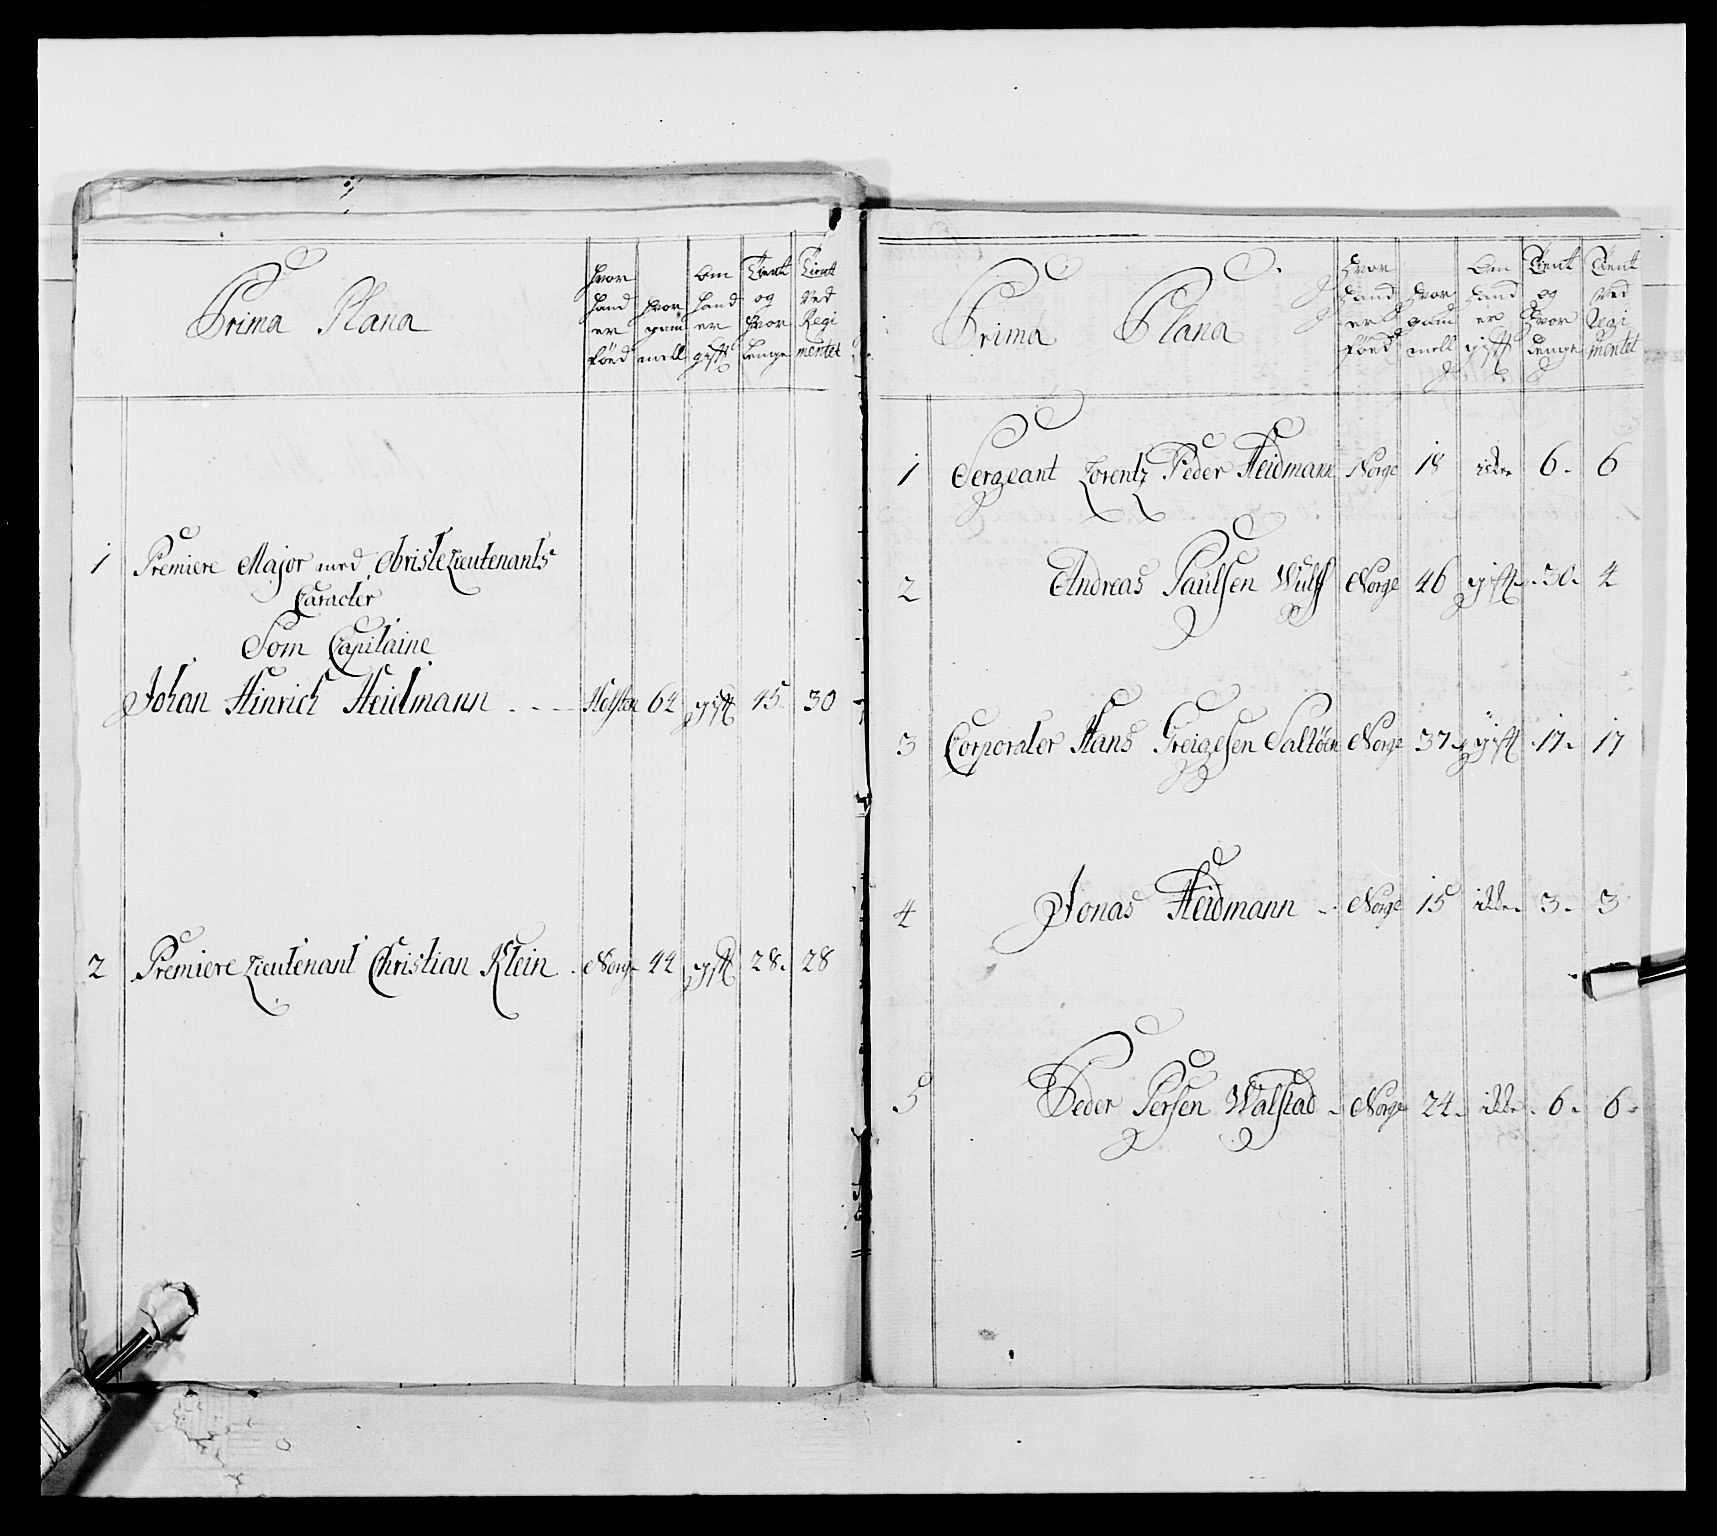 Prima Plana
Hvor hand er föed
Hvor gam mell
Om hand er gift
Tient og Hvor Lenge
Tient Ved Regi mentet
1 Premiere Major med ObristeLieutenants
Caracter
Som Capitaine
Johan Hinrich Heidmann Holsten 64 gift 45 30
2 Premiere Lieutenant Christian Klein Norge 44 gift 28 28
Prima Plana
Hvor Hand er föed
Hvor gam mell
Om Hand er gift
Tient og Hvor Lenge
Tient Ved Regi mentet
1 Sergeant Lorentz Peder Heidmann Norge 18 ikke 6 6
2 Andreas Paulsen Wulff Norge 46 gift 30 4
3 Corporaler Hans Greigesen Saltöen Norge 37 gift 17 17
4 Jonas Heidmann Norge 15 ikke 3 3
5 Peder Persen Walstad Norge 24 ikke 6 6